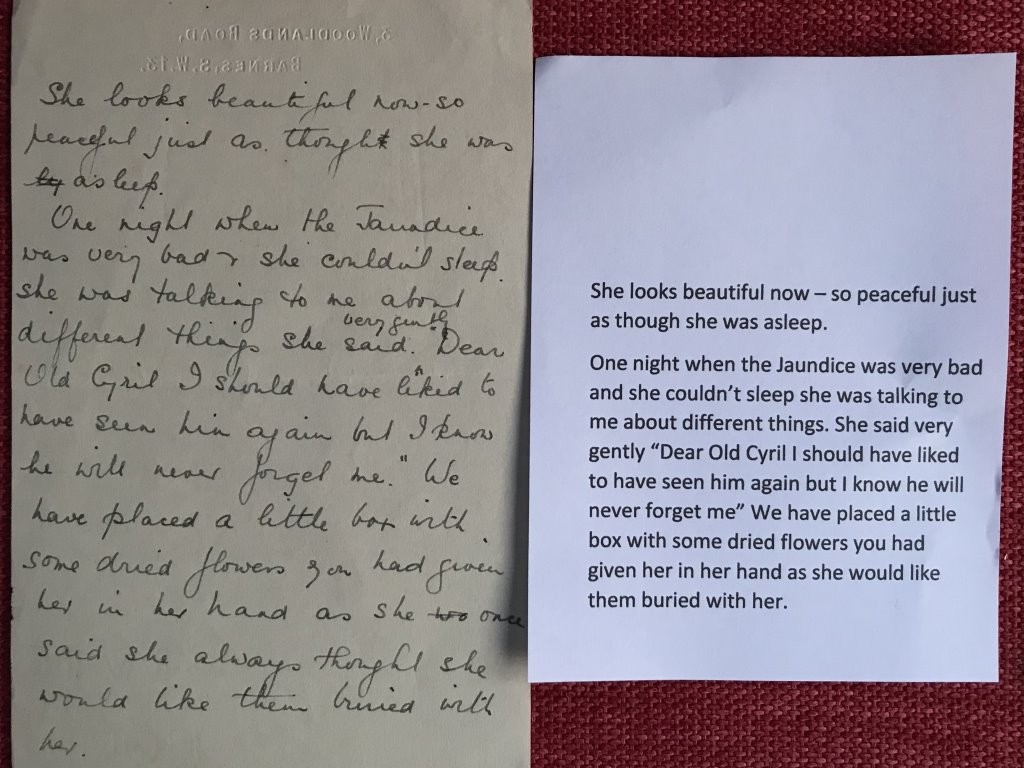 3, WOODLANDS ROAD,
BARNES, S.W.13.
She looks beautiful now - so
peaceful just as thought she was
asleep.
One night when the Jaundice
was very bad & she couldn't sleep.
she was talking to me about
different things she said. very gently "Dear
Old Cyril I should have liked to
have seen him again but I know
he will never forget me." We
have placed a little box with
some dried flowers you had given
her in her hand as she once
said she always thought she
would like them buried with
her.
She looks beautiful now – so peaceful just
as though she was asleep.
One night when the Jaundice was very bad
and she couldn't sleep she was talking to
me about different things. She said very
gently “Dear Old Cyril I should have liked
to have seen him again but I know he will
never forget me” We have placed a little
box with some dried flowers you had
given her in her hand as she would like
them buried with her.